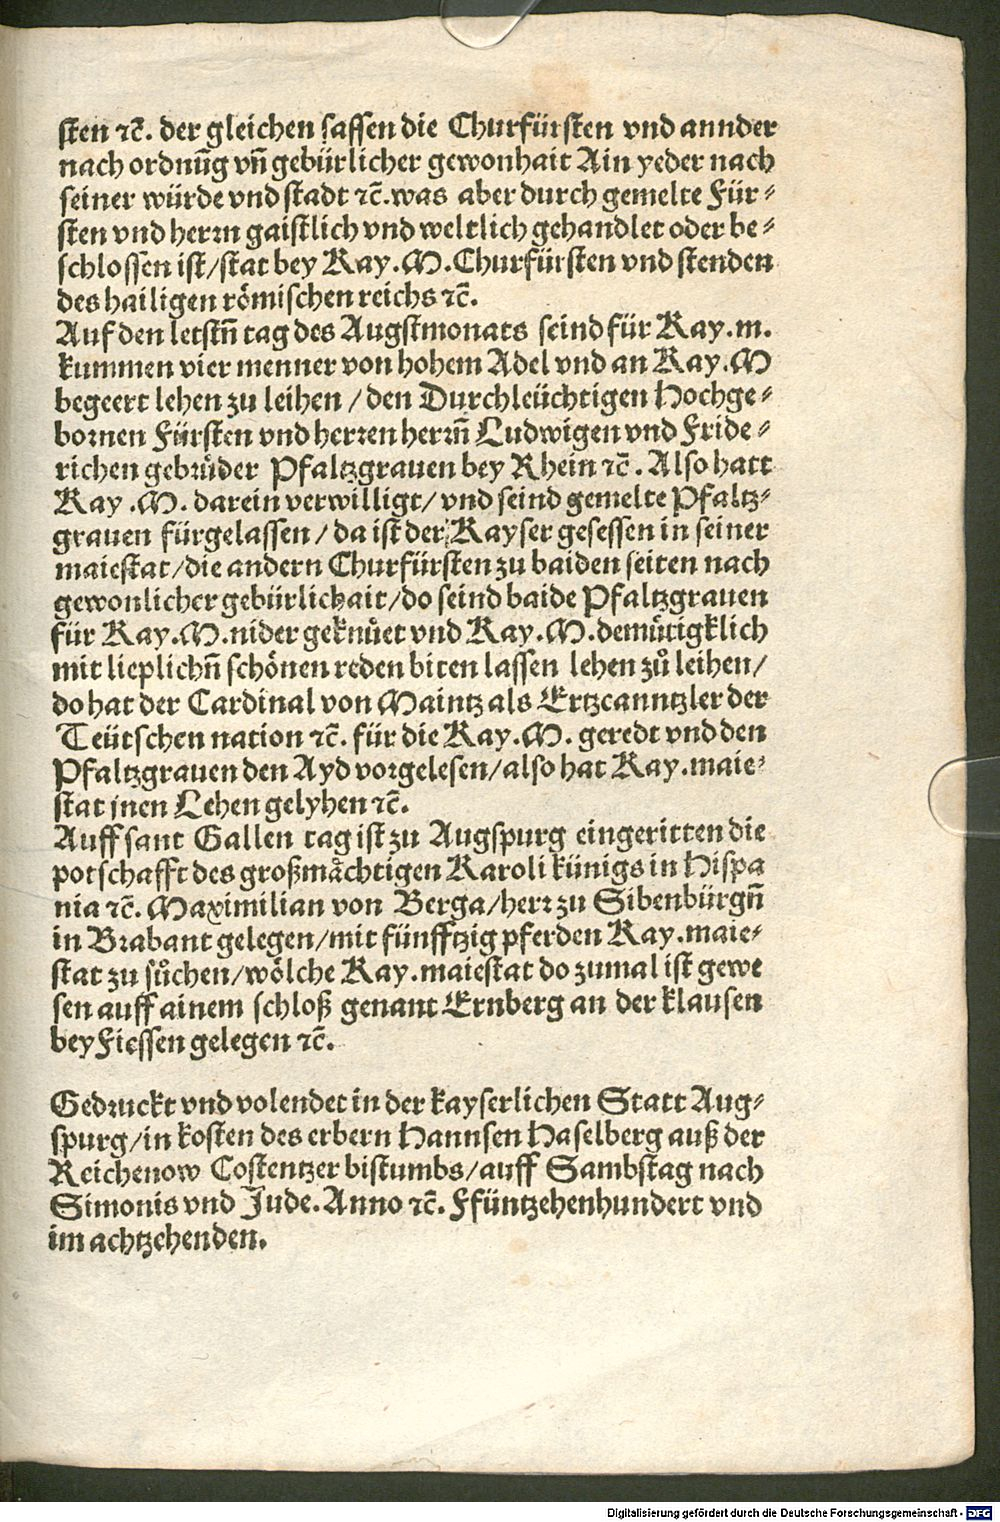 sten ꝛc̄. der gleichen sassen die Churfürsten vnd annder
nach ordnūg vn̄ gebürlicher gewonhait Ain yeder nach
seiner würde vnd stadt ꝛc̄. was aber durch gemelte Für⸗
sten vnd herrn gaistlich vnd weltlich gehandlet oder be⸗
schlossen ist/stat bey Kay.M.Churfürsten vnd stenden
des hailigen römischen reichs ꝛc̄.
Auf den letstn̄ tag des Augstmonats seind für Kay.m.
kummen vier menner von hohem Adel vnd an Kay.M
begeert lehen zu leihen/den Durchleüchtigen Hochge⸗
bornen Fürsten vnd herren herrn̄ Ludwigen vnd Fride⸗
richen gebruͦder Pfaltzgrauen bey Rhein ꝛc̄. Also hatt
Kay.M. darein verwilligt/vnd seind gemelte Pfaltz⸗
grauen fürgelassen/da ist der Kayser gesessen in seiner
maiestat/die andern Churfürsten zu baiden seiten nach
gewonlicher gebürlichait/do seind baide Pfaltzgrauen
für Kay.M.nider geknuͤet vnd Kay.M.demuͤtigklich
mit lieplichn̄ schönen reden biten lassen lehen zuͦ leihen/
do hat der Cardinal von Maintz als Ertzcanntzler der
Teütschen nation ꝛc̄. für die Kay.M. geredt vnd den
Pfaltzgrauen den Ayd vorgelesen/also hat Kay.maie⸗
stat jnen Lehen gelyhen ꝛc̄.
Auff sant Gallen tag ist zu Augspurg eingeritten die
potschafft des großmächtigen Karoli künigs in Hispa
nia ꝛc̄. Maximilian von Berga/herr zu Sibenbürgn̄
in Brabant gelegen/mit fünfftzig pferden Kay.maie⸗
stat zu suͦchen/wölche Kay.maiestat do zumal ist gewe
sen auff ainem schloß genant Ernberg an der klausen
bey Fiessen gelegen ꝛc̄.
Gedruckt vnd volendet in der kayserlichen Statt Aug⸗
spurg/in kosten des erbern Hannsen Haselberg auß der
Reichenow Costentzer bistumbs/auff Sambstag nach
Simonis vnd Jude. Anno ꝛc̄. Ffüntzehenhundert vnd
im achtzehenden.
Digitalisierung gefördert durch die Deutsche Forschungsgemeinschaft - DFG